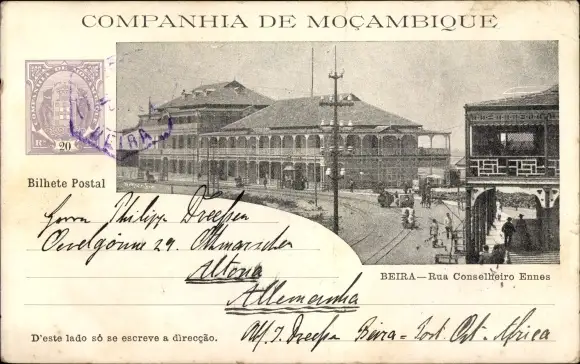 COMPANHIA DE MOÇAMBIQUE
20
BEIRA
Bilhete Postal
Herrn Philipp Dreesen
Övelgönne 29. Othmarschen
Altona
Allemanha
BEIRA—Rua Conselheiro Ennes
D'este lado só se escreve a direcção.
Beira = Port. Ost-Africa